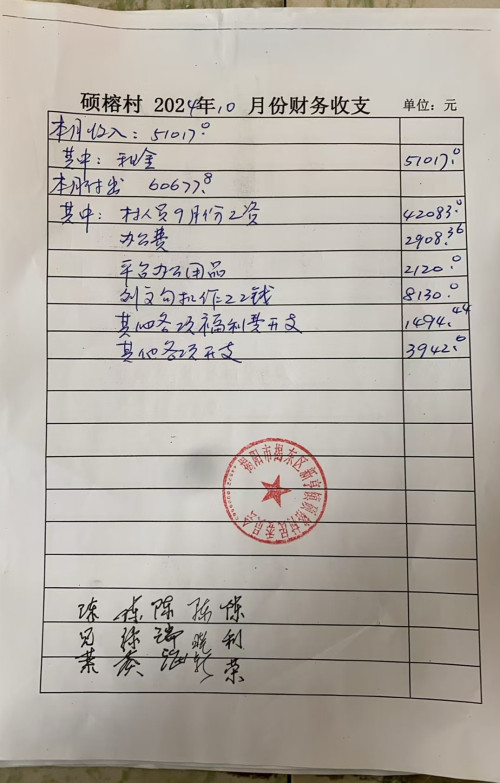 硕榕村 2024年10月份财务收支 单位：元
本月收入：51017.0
其中：租金 51017.0
本月付出 60677.8
其中：村人员9月份工资 42083.0
办公费 2908.36
平台办公用品 2120.0
8130.0
其他各项福利费开支 1494.44
其他各项开支 3942.0
揭阳市揭东区新亨镇硕榕村民委员会